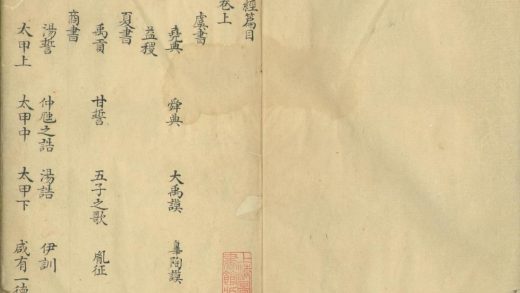 經篇目
卷上
虞書
堯典 舜典 大禹謨 臯陶謨
益稷
夏書
禹貢 甘誓 五子之歌 胤征
商書
湯誓 仲虺之誥 湯誥 伊訓
太甲上 太甲中 太甲下 咸有一德